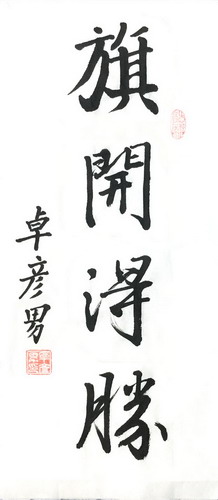 旗開得勝
卓彥男